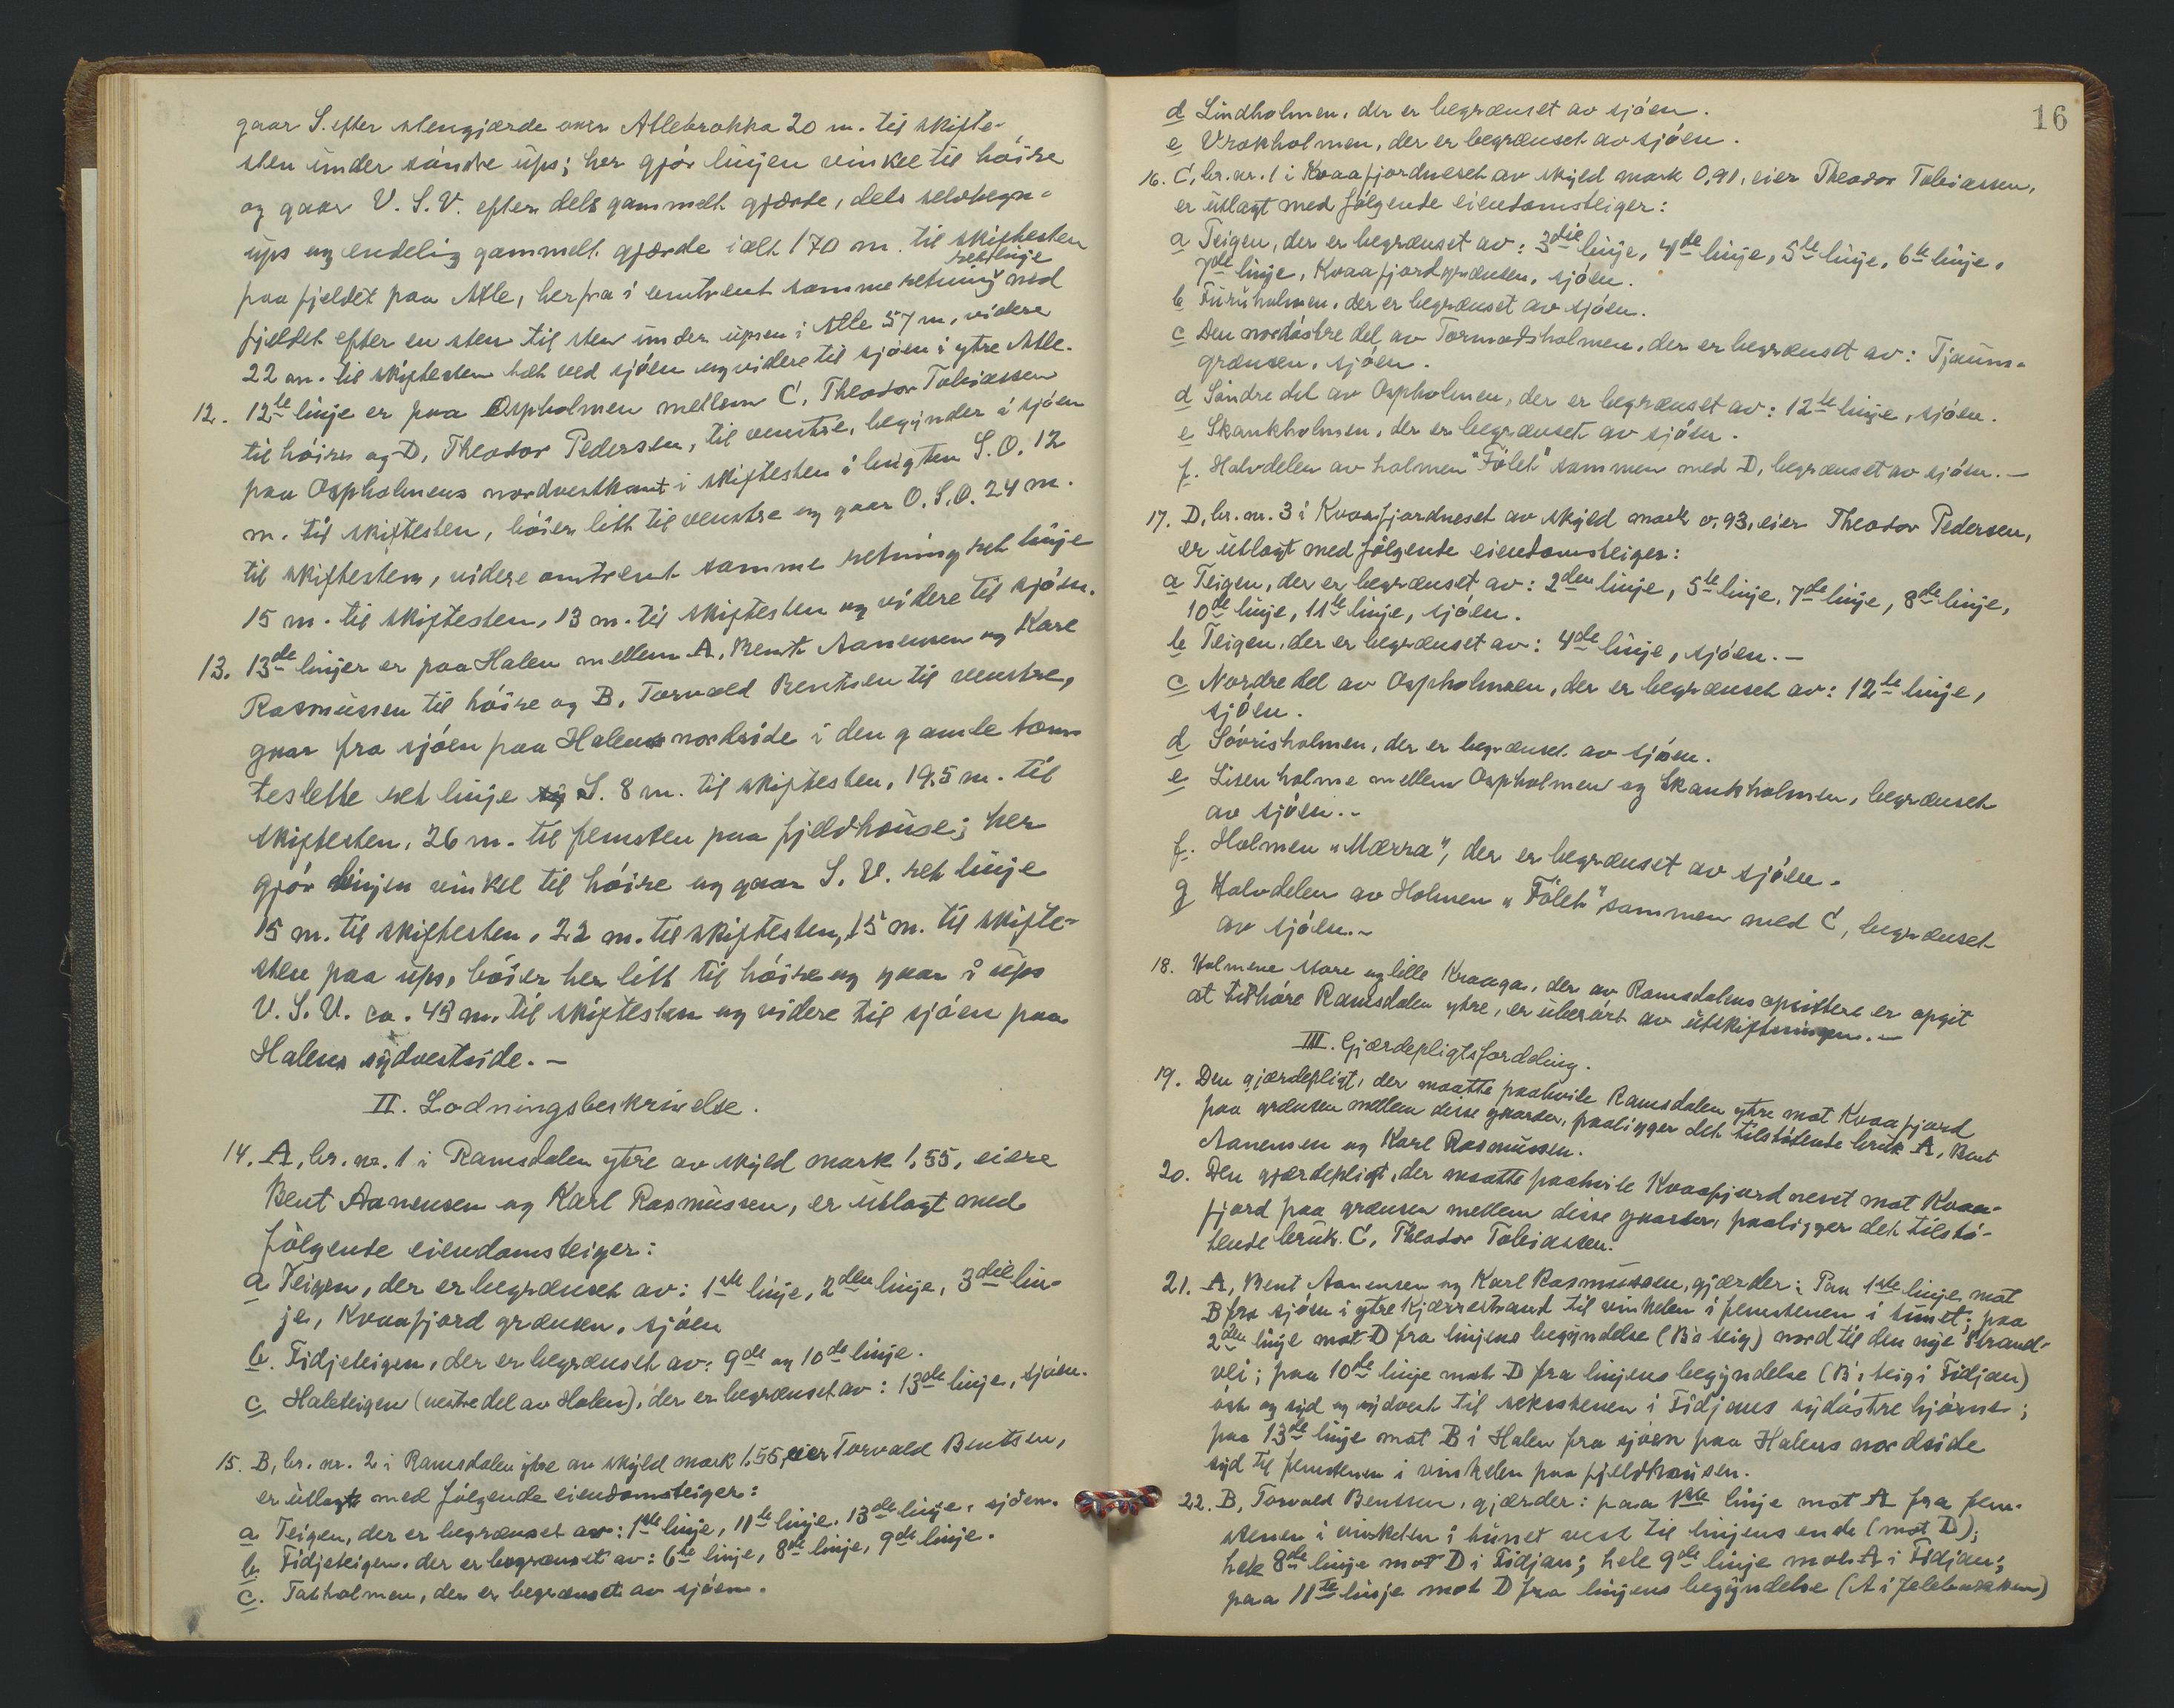 gaar S. efter stengjærde over Atlebrokka 20 m. til skifte-
sten under söndre ups; her gjör linjen vinkel til höire
og gaar V. S. V. efter dels gammelt gjærde, dels selvbegn-
ups og endelig gammelt gjærde ialt 170 m. til skiftesten
ret linje
paa fjeldet paa Atle, herfra i omtrent samme retning ned
fjeldet efter en sten til sten under upsen i Atle 57 m, videre
22 m. til skiftesten tæt ved sjöen og videre til sjöen i ytre Atle.
12. 12te linje er paa Ospholmen mellem C, Theodor Tobiassen
til höire og D, Theodor Pedersen, til venstre, begynder i sjöen
paa Ospholmens nordvestkant i skiftesten i lngten S. O. 12
m. til skiftesten, böier litt til venstre og gaar O. S. O. 24 m.
til skiftesten, videre omtrent samme retning ret linje
15 m. til skiftesten, 13 m. til skiftesten og videre til sjöen.
13. 13de linjer er paa Halen mellem A, Bent Aanensen og Karl
Rasmussen til höire og B, Torvald Bentsen til venstre,
gaar fra sjöen paa Halens nordside i den gamle tom-
teslette ret linje S. 8 m. til skiftesten, 19.5 m. til
skiftesten, 26 m. til femsten paa fjeldhause; her
gjör linjen vinkel til höire og gaar S. V. ret linje
15 m. til skiftesten, 22 m. til skiftesten, 15 m. til skifte-
sten paa ups, böier her litt til höire og gaar i ups
V. S. V. ca. 43 m. til skiftesten og videre til sjöen paa
Halens sydvestside. –
II. Lodningsbeskrivelse.
14. A, br. nr. 1 i Ramsdalen ytre av skyld mark 1,55, eiere
Bent Aanensen og Karl Rasmussen, er utlagt med
fölgende eiendomsteiger:
a Teigen, der er begrænset av: 1ste linje, 2den linje, 3die lin-
je, Kvaafjord grænsen, sjöen
b. Fidjeteigen, der er begrænset av: 9de og 10de linje.
c Haleteigen (vestre del av Halen), der er begrænset av: 13de linje, sjöen.
15. B, br. nr. 2 i Ramsdalen ytre av skyld mark 1,55, eier Torvald Bentsen,
er utlagt med fölgende eiendomsteiger:
a Teigen, der er begrænset av: 1ste linje, 11te linje, 13de linje, sjöen.
b. Fidjeteigen, der er begrænset av: 6te linje, 8de linje, 9de linje.
c. Taholmen, der er begrænset av sjöen.
16
d Lindholmen, der er begrænset av sjöen.
e Vrakholmen, der er begrænset av sjöen.
16. C, br. nr. 1 i Kvaafjordneset av skyld mark 0,91, eier Theodor Tobiassen,
er utlagt med fölgende eiendomsteiger:
a Teigen, der er begrænset av: 3die linje, 4de linje, 5te linje, 6te linje,
7de linje, Kvaafjordgrænsen, sjöen.
b Furuholmen, der er begrænset av sjöen.
c Den nordöstre del av Tormodsholmen, der er begrænset av: Tjaums-
grænsen, sjöen.
d Söndre del av Ospholmen, der er begrænset av: 12te linje, sjöen.
e Skankholmen, der er begrænset av sjöen.
f. Halvdelen av holmen "Fölet" sammen med D, begrænset av sjöen. –
17. D, br. nr. 3 i Kvaafjordneset av skyld mark 0,93, eier Theodor Pedersen,
er utlagt med fölgende eiendomsteiger:
a Teigen, der er begrænset av: 2den linje, 5te linje, 7de linje, 8de linje,
10de linje, 11te linje, sjöen.
b Teigen, der er begrænset av: 4de linje, sjöen. –
c Nordre del av Ospholmen, der er begrænset av: 12te linje,
sjöen.
d Sövrisholmen, der er begrænset av sjöen.
e Lisen holme mellem Ospholmen og Skankholmen, begrænset
av sjöen. –
f. Holmen "Mærra", der er begrænset av sjöen.
g Halvdelen av Holmen "Fölet" sammen med C, begrænset
av sjöen. –
18. Holmene store og lille Kraaga, der av Ramsdalens opsittere er opgit
at tilhöre Ramsdalen ytre, er uberört av utskiftningen. –
III. Gjærdepligtsfordeling.
19. Den gjærdepligt, der maatte paahvile Ramsdalen ytre mot Kvaafjord
paa grænsen mellem disse gaarder, paaligger det tilstötende bruk A, Bent
Aanensen og Karl Rasmussen.
20. Den gjærdepligt, der maatte paahvile Kvaafjord neset mot Kvaa-
fjord paa grænsen mellem disse gaarder, paaligger det tilstö-
tende bruk C, Theodor Tobiassen.
21. A, Bent Aanensen og Karl Rasmussen, gjærder: Paa 1ste linje mot
B fra sjöen i ytre Kjærrestrand til vinkelen i femstenen i tunet; paa
2den linje mot D fra linjens begyndelse (B's teig) nord til den nye Strand-
vei; paa 10de linje mot D fra linjens begyndelse (B's teig i Fidjan)
öst og syd og sydvest til seksstenen i Fidjens sydöstre hjörne;
paa 13de linje mot B i Halen fra sjöen paa Halens nordside
syd til femstenen i vinkelen paa fjeldhausen.
22. B, Torvald Bentsen, gjærder: paa 1ste linje mot A fra fem-
stenen i vinkelen i tunet vest til linjens ende (mot D);
hele 8de linje mot D i Fidjan; hele 9de linje mot A i Fidjan;
paa 11te linje mot D fra linjens begyndelse (A i